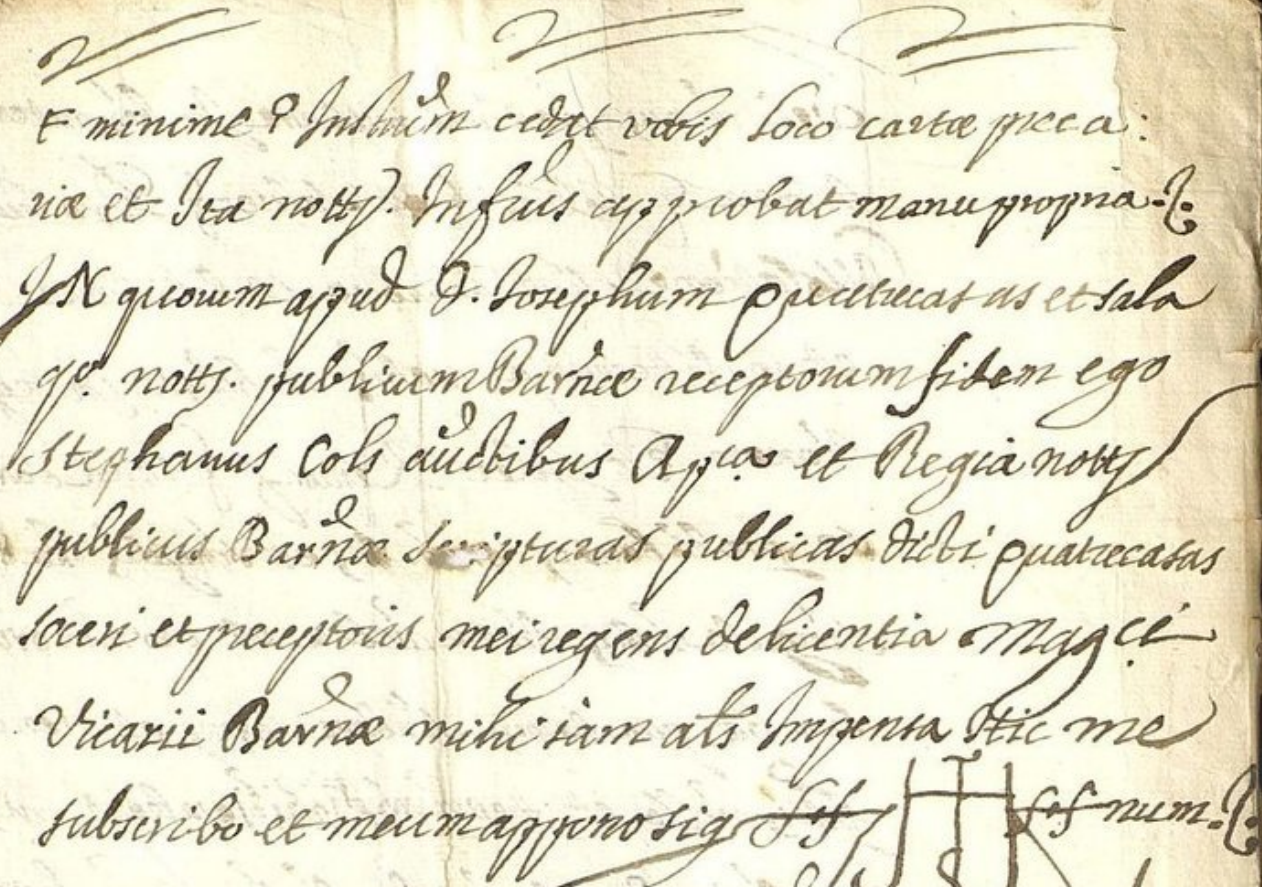 F minime ꝑ Instrūm cedat vobis loco cartæ preca:
riæ et Ita notts. Infrūs approbat manu propria.
IN quorum apud D. Iosephum Quatrecasas et sala
qº. notts. publicum Barnæ receptorum fidem ego
Stephanus Cols auctibus Apca. et Regia notts
publicus Barnæ scripturas publicas dicti Quatrecasas
soceri et preceptoris mei regens de licentia Magci.
Vicarii Barnæ mihi iam als Impensa Hic me
subscribo et meum appono sig num.